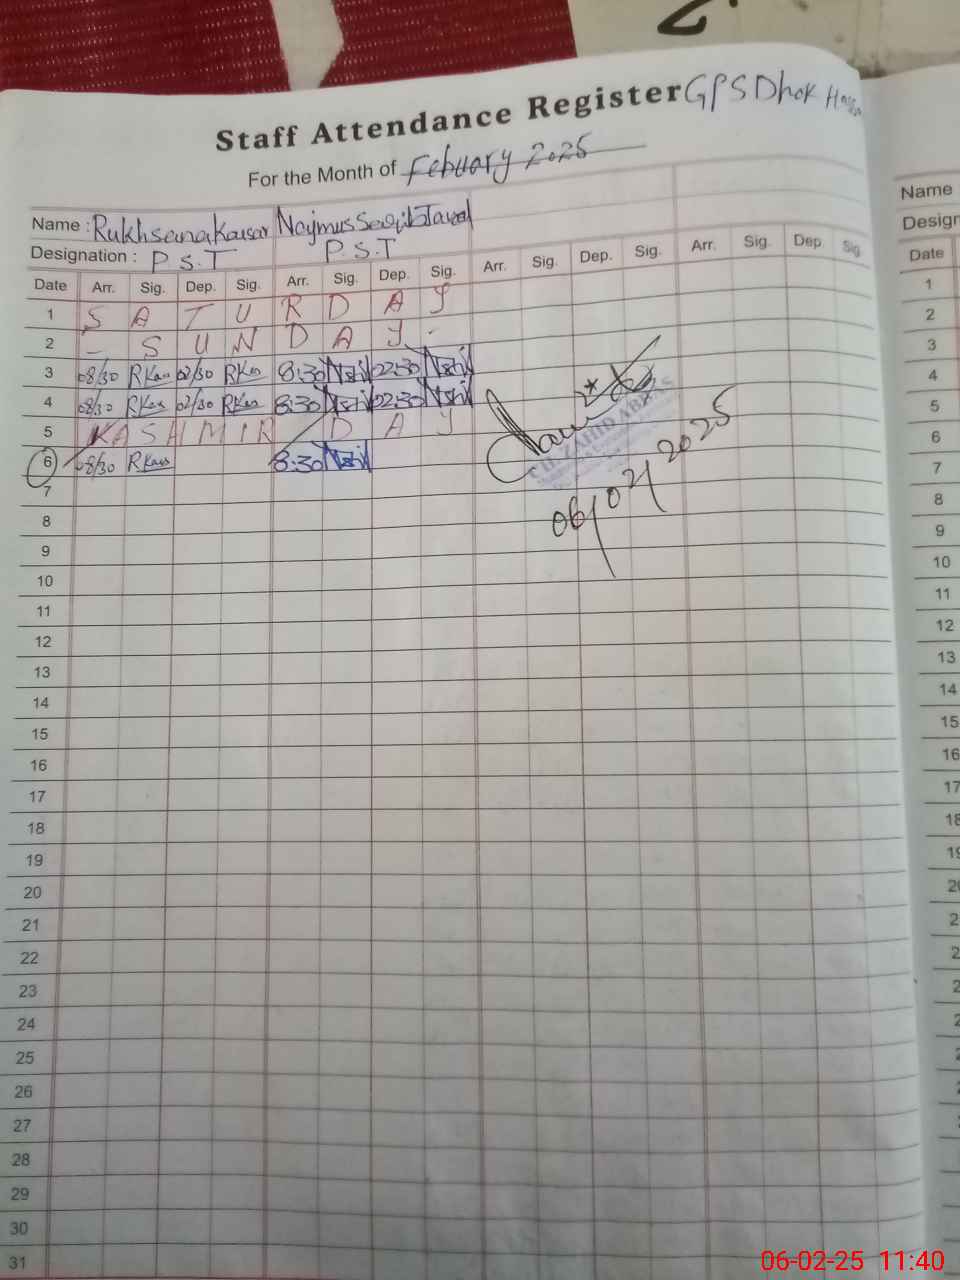 Staff Attendance Register GPS Dhok
For the Month of Febuary 2025
Name : Rukhsana Kausar Najmus
Designation : P.S.T P.S.T
Date Arr. Sig. Dep. Sig. Arr. Sig. Dep. Sig. Arr. Sig. Dep. Sig. Arr. Sig. Dep. Sig.
1 S A T U R D A Y
2 - S U N D A Y -
3 08/30 RKau 02/30 RKau 8:30 02:30
4 08/30 RKau 02/30 RKau 8:30 02:30
5 KASHMIR D A Y
6 08/30 RKaus 8:30
ZAHID ABBAS
06/02/2025
7
8
9
10
11
12
13
14
15
16
17
18
19
20
21
22
23
24
25
26
27
28
29
30
31
Name
Date
1
2
3
4
5
6
7
8
9
10
11
12
13
14
15
16
17
18
06-02-25 11:40